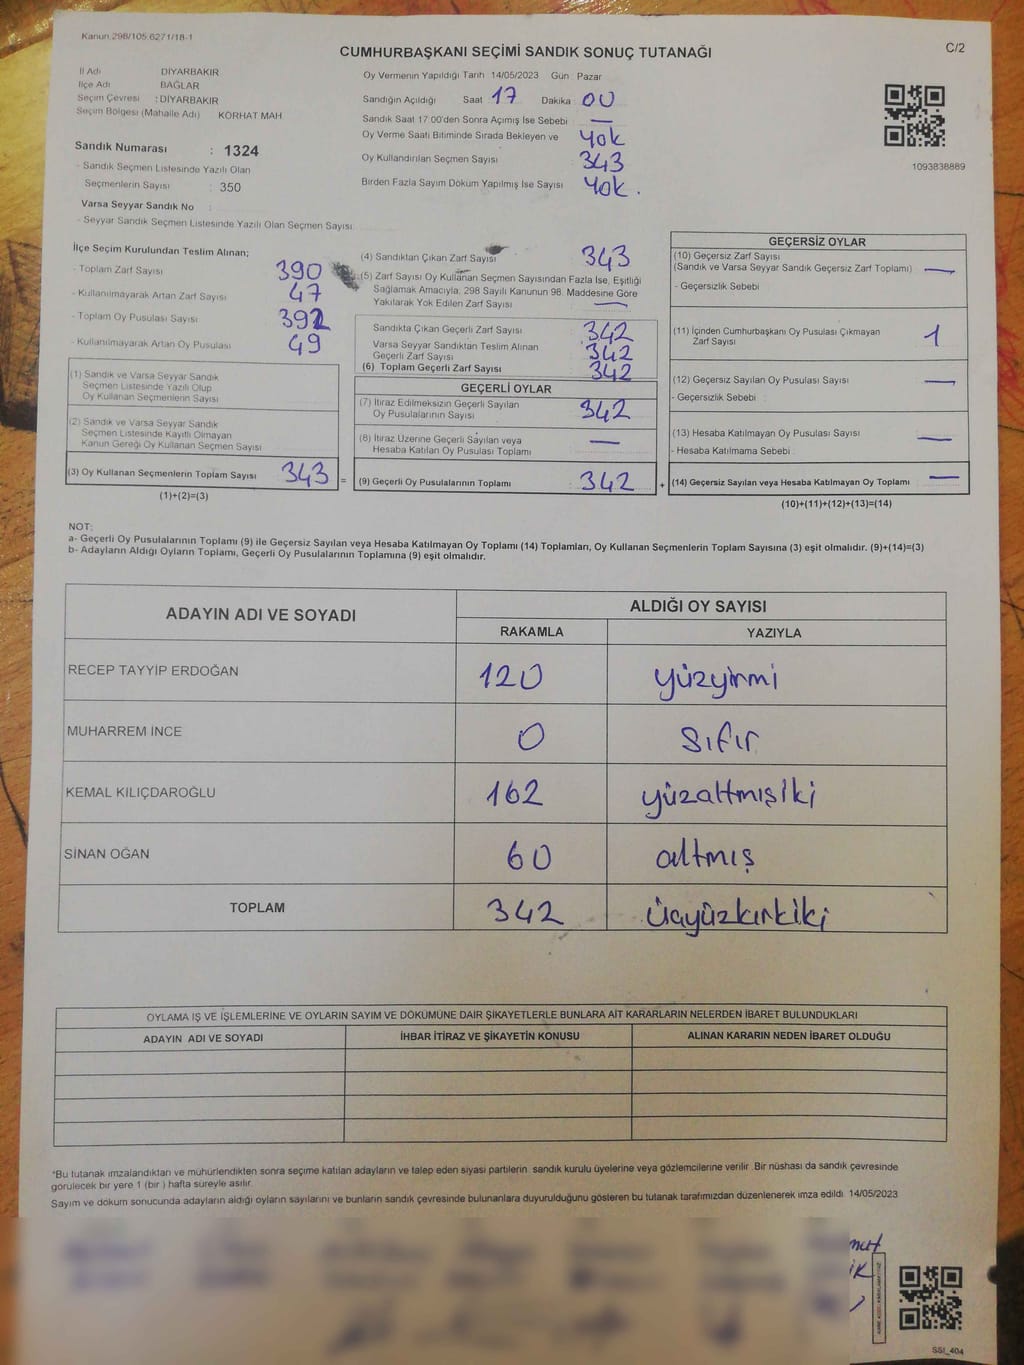 Kanun.298/105.6271/18-1
CUMHURBAŞKANI SEÇİMİ SANDIK SONUÇ TUTANAĞI
C/2
İl Adı DİYARBAKIR
İlçe Adı BAĞLAR
Seçim Çevresi : DİYARBAKIR
Seçim Bölgesi (Mahalle Adı) KORHAT MAH
Sandık Numarası : 1324
- Sandık Seçmen Listesinde Yazılı Olan
Seçmenlerin Sayısı : 350
Varsa Seyyar Sandık No :
- Seyyar Sandık Seçmen Listesinde Yazılı Olan Seçmen Sayısı:
Oy Vermenin Yapıldığı Tarih 14/05/2023 Gün Pazar
Sandığın Açıldığı Saat 17 Dakika 00
Sandık Saat 17:00'den Sonra Açılmış İse Sebebi —
Oy Verme Saati Bitiminde Sırada Bekleyen ve Yok
Oy Kullandırılan Seçmen Sayısı 343
Birden Fazla Sayım Döküm Yapılmış İse Sayısı Yok.
1093838889
İlçe Seçim Kurulundan Teslim Alınan;
- Toplam Zarf Sayısı 390
- Kullanılmayarak Artan Zarf Sayısı 47
- Toplam Oy Pusulası Sayısı 392
- Kullanılmayarak Artan Oy Pusulası 49
(1) Sandık ve Varsa Seyyar Sandık
Seçmen Listesinde Yazılı Olup
Oy Kullanan Seçmenlerin Sayısı
(2) Sandık ve Varsa Seyyar Sandık
Seçmen Listesinde Kayıtlı Olmayan
Kanun Gereği Oy Kullanan Seçmen Sayısı
(3) Oy Kullanan Seçmenlerin Toplam Sayısı 343 =
(1)+(2)=(3)
(4) Sandıktan Çıkan Zarf Sayısı 343
(5) Zarf Sayısı Oy Kullanan Seçmen Sayısından Fazla İse, Eşitliği
Sağlamak Amacıyla, 298 Sayılı Kanunun 98. Maddesine Göre
Yakılarak Yok Edilen Zarf Sayısı —
Sandıkta Çıkan Geçerli Zarf Sayısı 342
Varsa Seyyar Sandıktan Teslim Alınan
Geçerli Zarf Sayısı 342
(6) Toplam Geçerli Zarf Sayısı 342
GEÇERLİ OYLAR
(7) İtiraz Edilmeksizin Geçerli Sayılan
Oy Pusulalarının Sayısı 342
(8) İtiraz Üzerine Geçerli Sayılan veya
Hesaba Katılan Oy Pusulası Toplamı —
(9) Geçerli Oy Pusulalarının Toplamı 342 +
GEÇERSİZ OYLAR
(10) Geçersiz Zarf Sayısı
(Sandık ve Varsa Seyyar Sandık Geçersiz Zarf Toplamı) —
- Geçersizlik Sebebi
(11) İçinden Cumhurbaşkanı Oy Pusulası Çıkmayan
Zarf Sayısı 1
(12) Geçersiz Sayılan Oy Pusulası Sayısı —
- Geçersizlik Sebebi :
(13) Hesaba Katılmayan Oy Pusulası Sayısı —
- Hesaba Katılmama Sebebi :
(14) Geçersiz Sayılan veya Hesaba Katılmayan Oy Toplamı —
(10)+(11)+(12)+(13)=(14)
NOT:
a- Geçerli Oy Pusulalarının Toplamı (9) ile Geçersiz Sayılan veya Hesaba Katılmayan Oy Toplamı (14) Toplamları, Oy Kullanan Seçmenlerin Toplam Sayısına (3) eşit olmalıdır. (9)+(14)=(3)
b- Adayların Aldığı Oyların Toplamı, Geçerli Oy Pusulalarının Toplamına (9) eşit olmalıdır.
ADAYIN ADI VE SOYADI ALDIĞI OY SAYISI
RAKAMLA YAZIYLA
RECEP TAYYİP ERDOĞAN 120 yüzyirmi
MUHARREM İNCE 0 sıfır
KEMAL KILIÇDAROĞLU 162 yüzaltmışiki
SİNAN OĞAN 60 altmış
TOPLAM 342 üçyüzkırkiki
OYLAMA İŞ VE İŞLEMLERİNE VE OYLARIN SAYIM VE DÖKÜMÜNE DAİR ŞİKAYETLERLE BUNLARA AİT KARARLARIN NELERDEN İBARET BULUNDUKLARI
ADAYIN ADI VE SOYADI İHBAR İTİRAZ VE ŞİKAYETİN KONUSU ALINAN KARARIN NEDEN İBARET OLDUĞU
*Bu tutanak imzalandıktan ve mühürlendikten sonra seçime katılan adayların ve talep eden siyasi partilerin, sandık kurulu üyelerine veya gözlemcilerine verilir. Bir nüshası da sandık çevresinde
görülecek bir yere 1 (bir) hafta süreyle asılır.
Sayım ve döküm sonucunda adayların aldığı oyların sayılarını ve bunların sandık çevresinde bulunanlara duyurulduğunu gösteren bu tutanak tarafımızdan düzenlenerek imza edildi. 14/05/2023
SSI_404